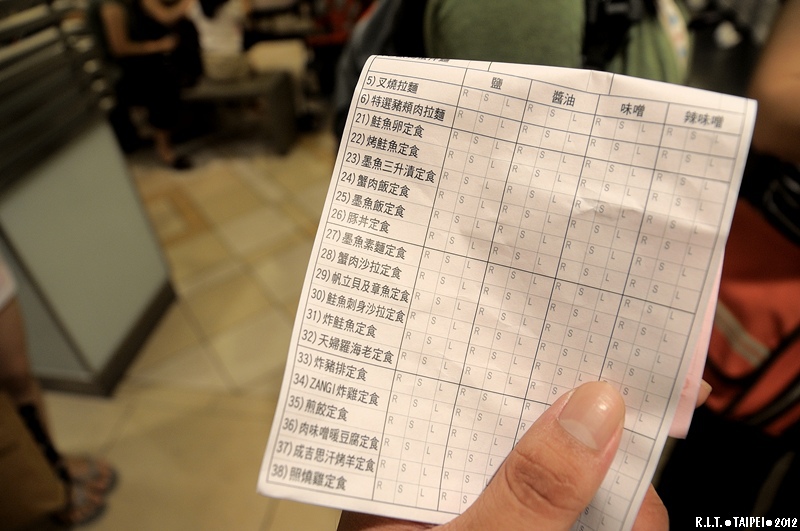 鹽 醬油 味噌 辣味噌
5) 叉燒拉麵 R S L R S L R S L R S L
6) 特選豬頰肉拉麵 R S L R S L R S L R S L
21) 鮭魚卵定食 R S L R S L R S L R S L
22) 烤鮭魚定食 R S L R S L R S L R S L
23) 墨魚三升漬定食 R S L R S L R S L R S L
24) 蟹肉飯定食 R S L R S L R S L R S L
25) 墨魚飯定食 R S L R S L R S L R S L
26) 豚丼定食 R S L R S L R S L R S L
27) 墨魚素麵定食 R S L R S L R S L R S L
28) 蟹肉沙拉定食 R S L R S L R S L R S L
29) 帆立貝及章魚定食 R S L R S L R S L R S L
30) 鮭魚刺身沙拉定食 R S L R S L R S L R S L
31) 炸鮭魚定食 R S L R S L R S L R S L
32) 天婦羅海老定食 R S L R S L R S L R S L
33) 炸豬排定食 R S L R S L R S L
34) ZANGI炸雞定食 R S L R S L
35) 煎餃定食 R S L R S L
36) 肉味噌暖豆腐定食 R S L R S L
37) 成吉思汗烤羊定食 R S L R S L
38) 照燒雞定食 R S L R
R.L.T.●TAIPEI●2012